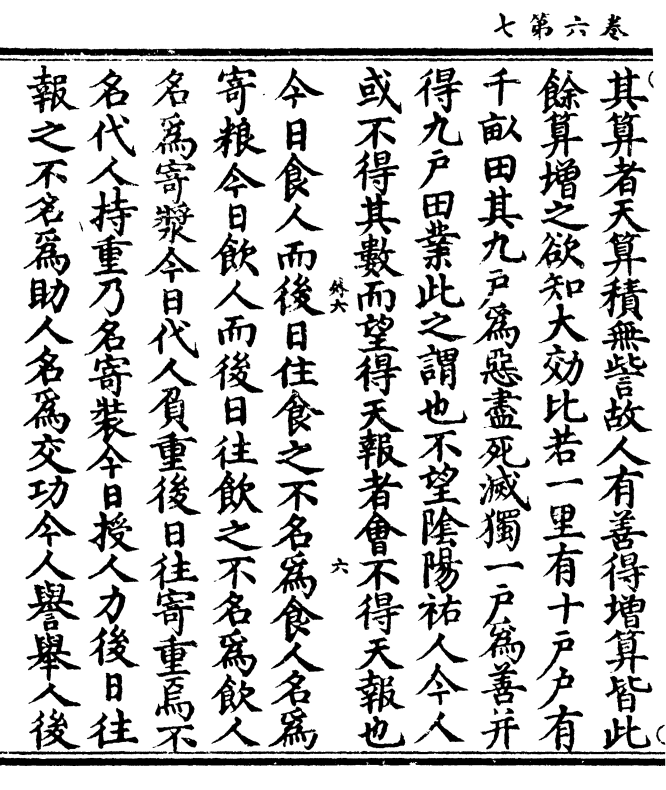 卷六第七
其算者天算積無訾故人有善得增算皆此
餘算增之欲知大効比若一里有十戶戶有
千畝田其九戶為惡盡死滅獨一戶為善并
得九戶田業此之謂也不望陰陽祐人今人
或不得其數而望得天報者會不得天報也
外六
六
今日食人而後日往食之不名為食人名為
寄粮今日飲人而後日往飲之不名為飲人
名為寄漿今日代人負重後日往寄重焉不
名代人持重乃名寄裝今日授人力後日往
報之不名為助人名為交功今人譽舉人後